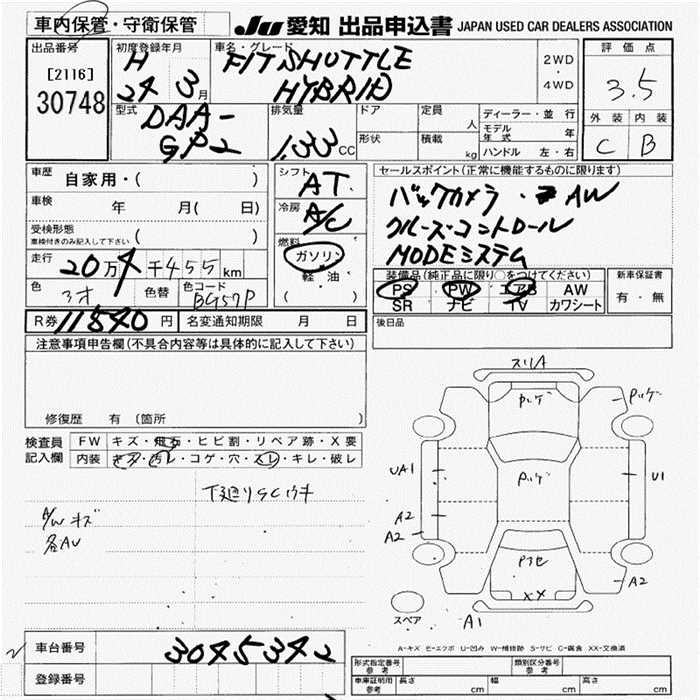 車内保管・守衛保管
JU 愛知 出品申込書 JAPAN USED CAR DEALERS ASSOCIATION
出品番号 初度登録年月 車名・グレード 評価点
[2116] H FIT SHUTTLE 2WD
30748 24 3月 HYBRID ・4WD 3.5
型式 排気量 ドア 定員 人 ディーラー・並行 外装 内装
DAA- モデル年式 年
GP2 1.33cc 形状 積載 kg ハンドル 左・右 C B
車歴 自家用・( ) シフト AT セールスポイント(正常に機能するものに限ります)
車検 年 月(日) 冷房 A/C バックカメラ・AW
受検形態 ( ) クルーズコントロール
車検付きのみ記入して下さい 燃料 MODEシステム
走行 20万4千455km ガソリン
軽・油 装備品(純正品に限り○をつけてください) 新車保証書
色 色替 色コード PS PW エアB AW 有・無
B957P ( ) SR ナビ TV カワシート
R券 11540円 名変通知期限 月 日 後日品
注意事項申告欄(不具合内容等は具体的に記入して下さい)
修復歴 有 (箇所 )
検査員 FW キズ・飛石・ヒビ割・リペア跡・X要
記入欄 内装 キズ・汚レ・コゲ・穴・スレ・キレ・破レ
下廻りSCウキ
A/Wキズ
各AU
スリA
Pハゲ Pハゲ
UA1 Pハゲ U1
A2
A2
Pフセ A2
XX
スペア A1
A-キズ E-エクボ U-凹み W-補修跡 S-サビ C-腐食 XX-交換済
車台番号 3045342
登録番号
型式指定番号 参考 類別区分番号 参考
車庫証明用 参考 長さ cm 幅 cm 高さ cm